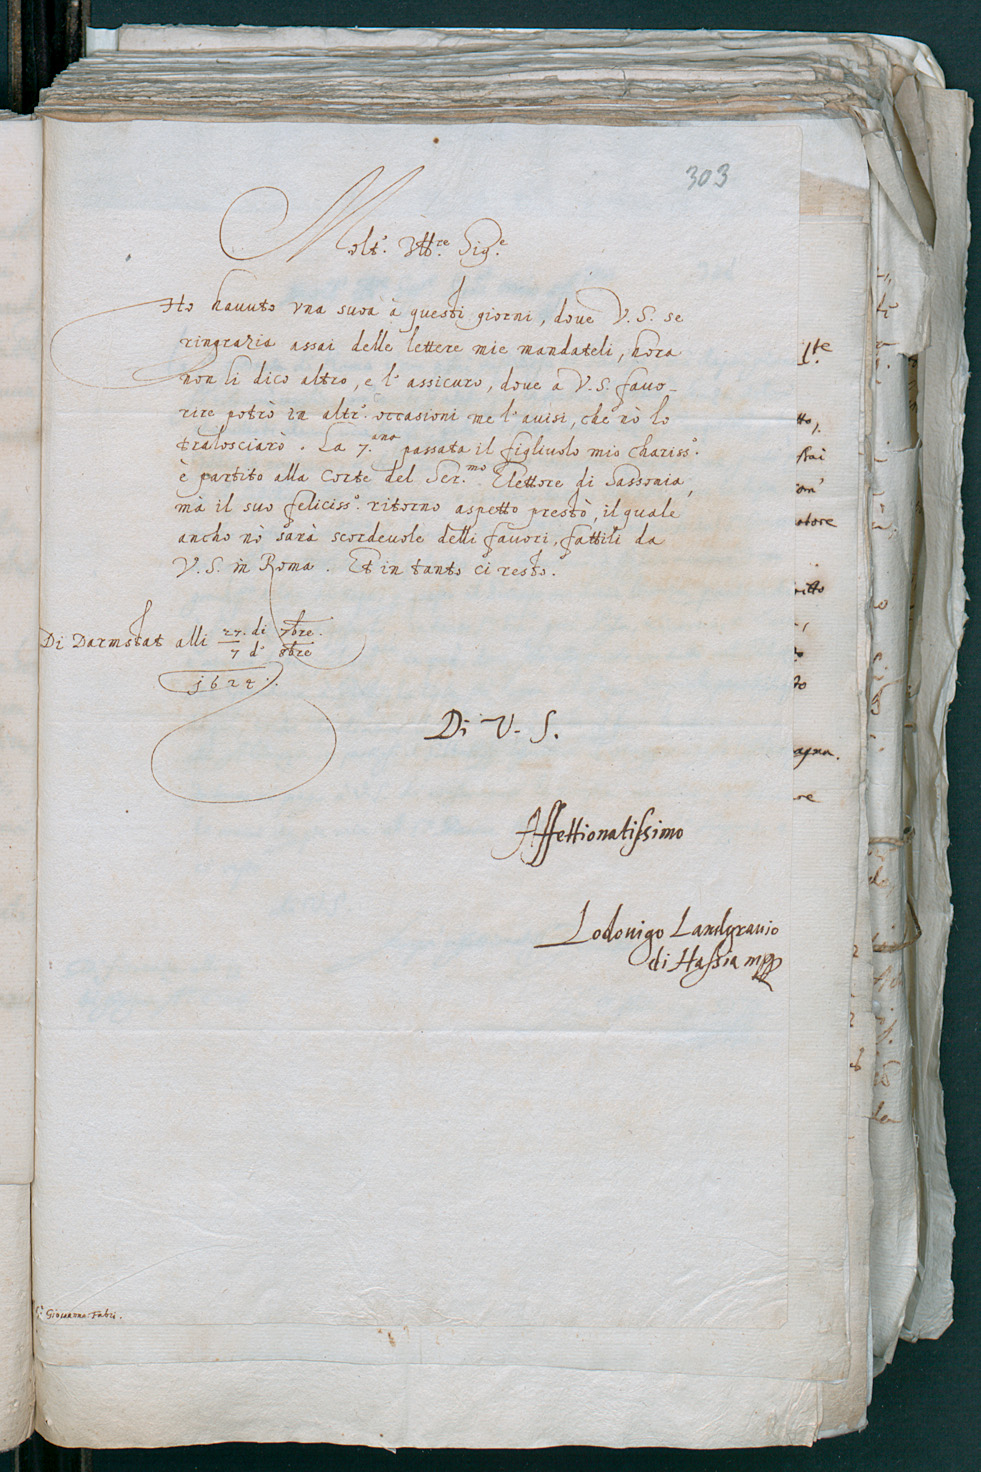 303
Molt'. Ill:re Sig:e
Ho hauuto vna sua à questi giorni, doue V. S. se
ringrazia assai delle lettere mie mandateli, hora
non li dico altro, e l' assicuro, doue à V. S. fauo-
rire potrò in altr'. occasioni me l' auisi, che nò lo
tralosciarò. La 7.ana passata il figliuolo mio chariss.o
è partito alla Corte del Ser.mo Elettore di Sassonia,
mà il suo feliciss.o ritorno aspetto prestò, il quale
ancho nò sarà scordeuole delli fauori, fattili da
V. S. in Roma. Et in tanto ci resto.
Di Darmstat alli 27. di 7bre.
7 d' 8bre
1624.
Di V. S.
Affettionatissimo
Lodouigo Landgrauio
di Hassia mpp
Giouanne Fabri.